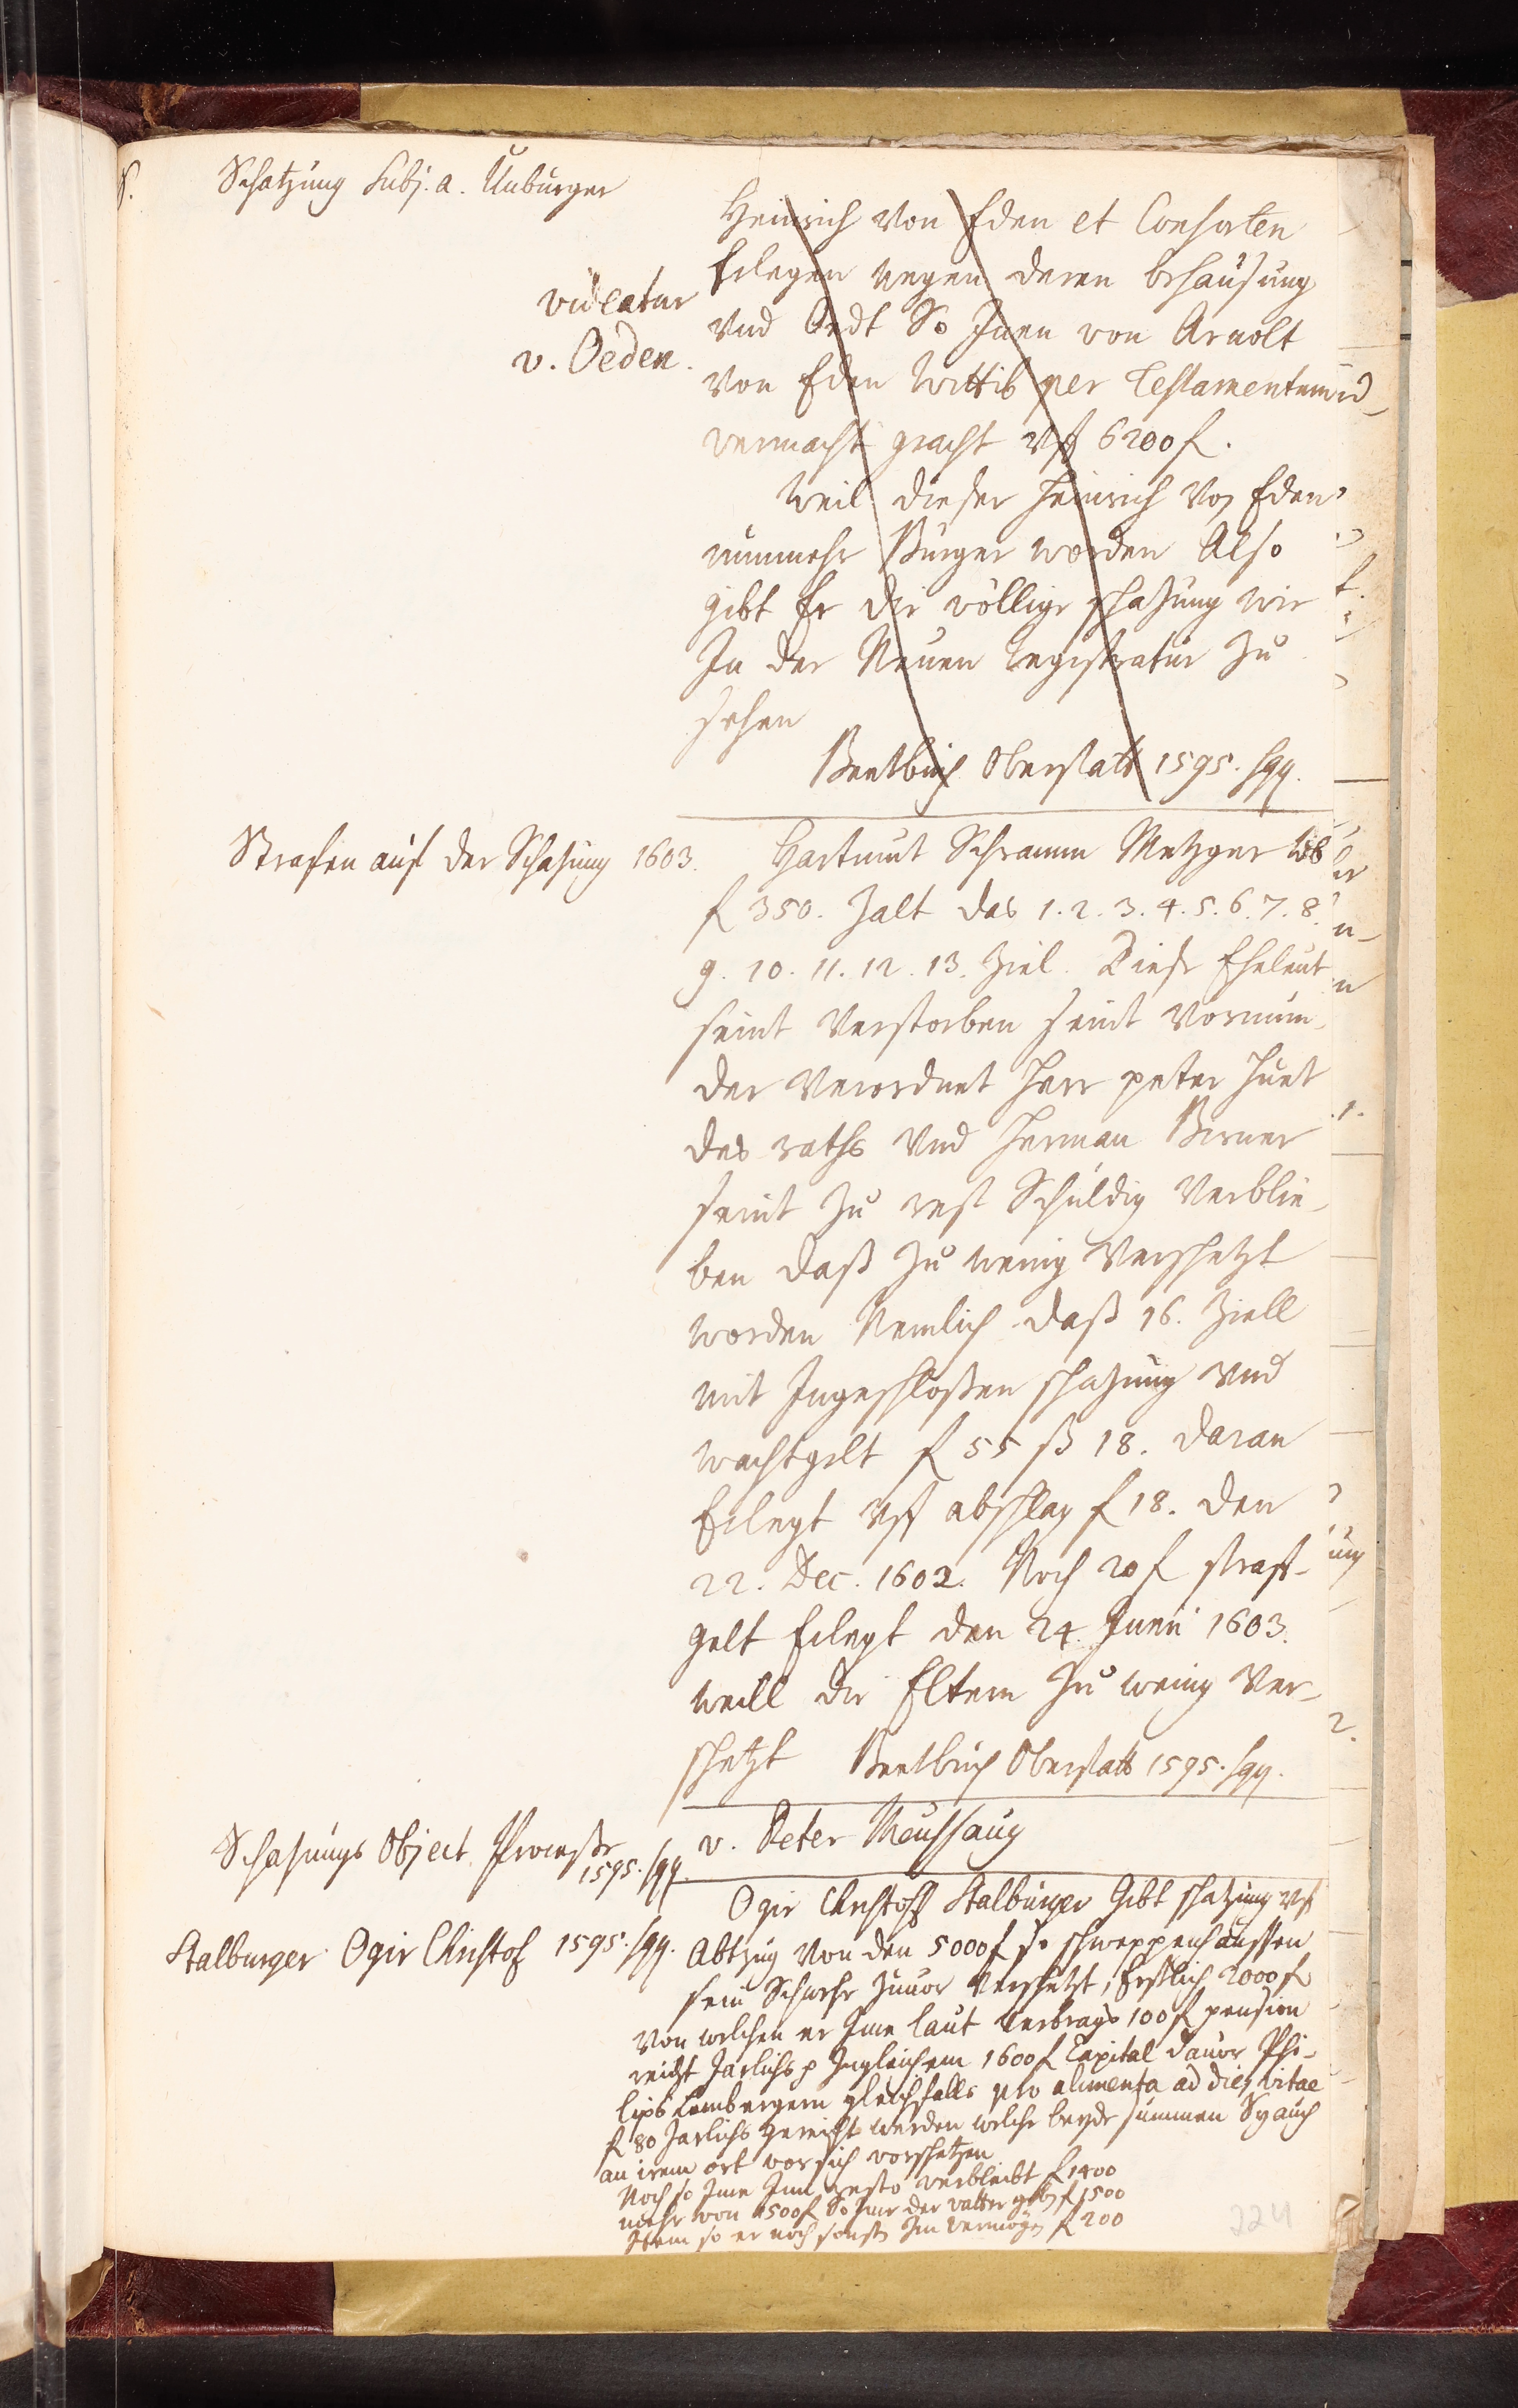 S.
Schatzung Subj. a. Unburger
videatur
v. Oeden.
Heinrich von Eden et Consorten
Erlegen wegen deren behausung
vnd Oedt So Inen von Arnolt
von Eden wittib per Testamentum
vermacht gracht vff 6200 f.
Weil dieser Heinrich von Eden
nunmehr Burger worden Also
gibt Er die völlige schazung wie
In der Neuen Registratur zu
sehen
Beetbuch Oberstatt 1595. sqq.
Strafen auf der Schazung 1603.
Hartmut Schramm Metzger
f 350. Zalt das 1. 2. 3. 4. 5. 6. 7. 8.
9. 10. 11. 12. 13. Ziel. Diese Eheleut
seint Verstorben seint Vormün-
der Verordnet Herr peter
des raths vnd Herman Berner
seint zu rest Schuldig Verblie-
ben daß zu wenig Verschetzt
worden Nemlich daß 16. Ziell
mit Ingeschloßen schazung vnd
wachtgelt f 55 ß 18. daran
Erlegt vff abschlag f 18. den
22. Dec. 1602. Noch 20 f straff-
gelt Erlegt den 24. Junii 1603.
weill die Eltern zu wenig Ver-
schetzt Beetbuch Oberstatt 1595. sqq.
Schazungs Object. Processe
1595. sqq.
v. Peter Meussaug
Stalburger Ogir Christof 1595. sqq.
Ogir Christoff Stalburger Gibt schatzung vff
Abtzug von den 5000 f so schweppenhaussen
sein Schwehr zuuor Verschetzt, Erstlich 2000 f
von welchen er Ime laut vertrags 100 f pension
reicht Jarlichs p Ingleichem 1600 f Capital dauor Phi-
lips Lembergern gleichfalls pro alimenta ad dies vitae
f 80 Jarlichs gereicht werden welche beyde summen Sy auch
an irem ort vor sich vorschetzen
Noch so Ime Inn resto verbleibt f 1400
mehr von 1500 f So Ime der vatter geben f 1500
Item so er noch sonsten Im vermögen f 200
224